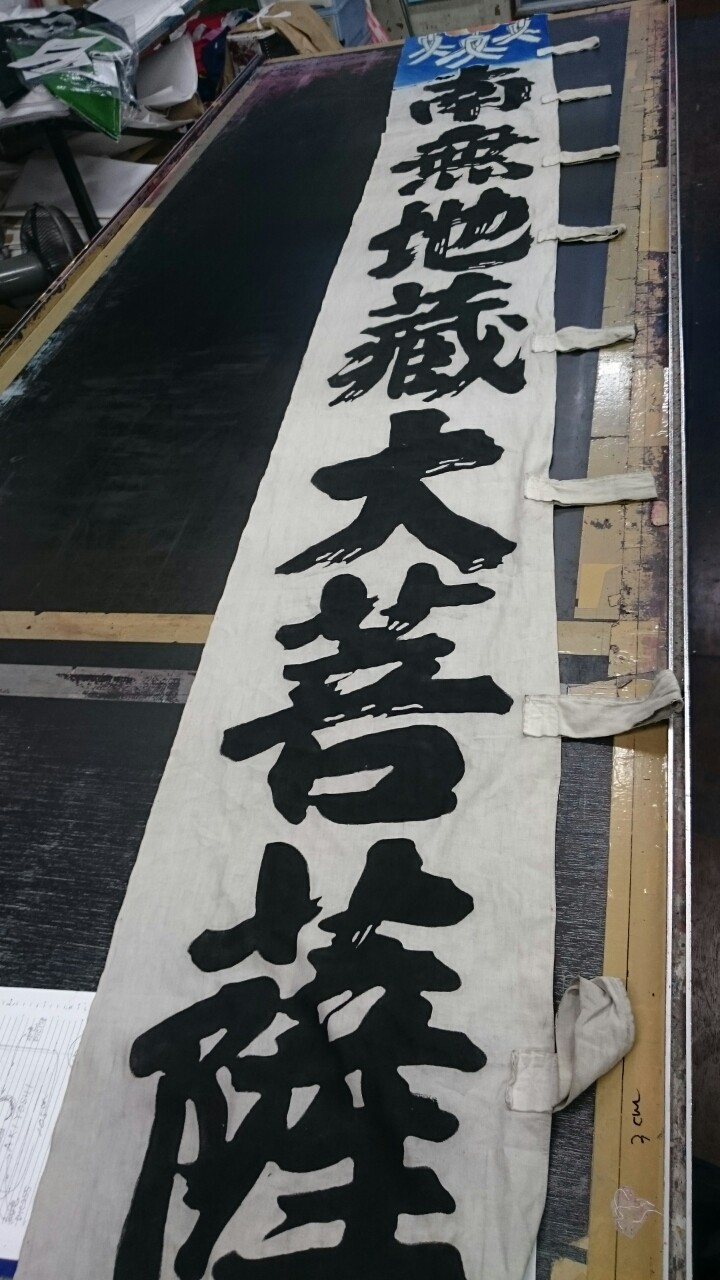 南無地蔵大菩薩
3cm